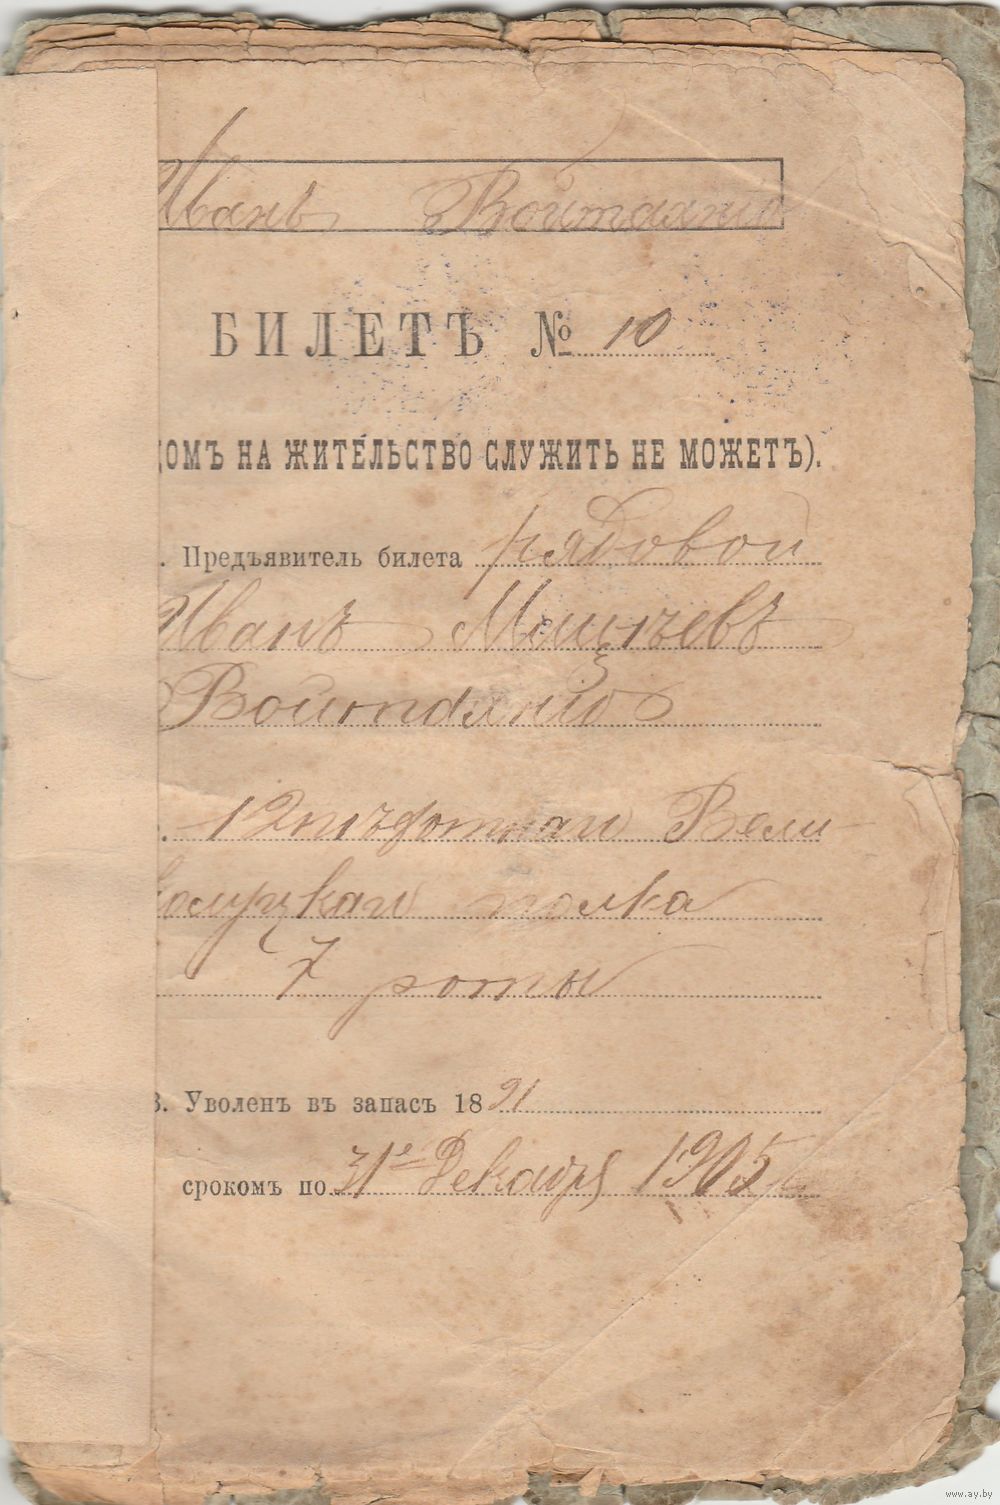 Иванъ Войтанио
БИЛЕТЪ № 10
ДОМЪ НА ЖИТЕЛЬСТВО СЛУЖИТЬ НЕ МОЖЕТЪ).
. Предъявитель билета рядовой
Иванъ
Войтанио
12 Вели
колуцкаго полка
7 роты
3. Уволенъ въ запасъ 1891
срокомъ по 31е Декабря 1905
www.ay.by